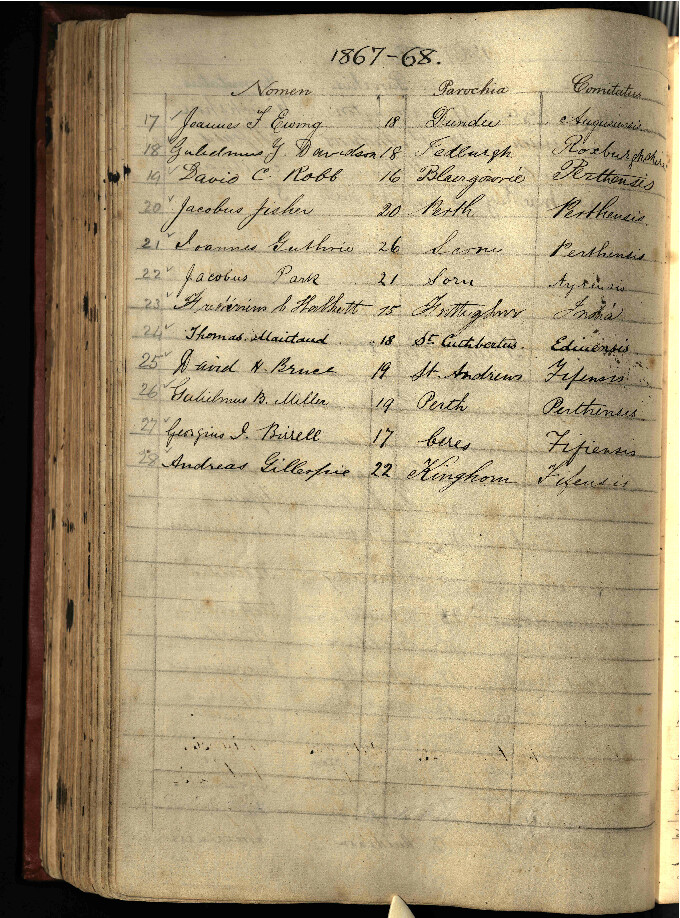 1867-68.
Nomen Parochia Comitatus
17 Joannes F Ewing 18 Dundee Angusensis
18 Gulielmus G. Davidson 18 Jedburgh Roxburghshire
19 David C. Robb 16 Blairgowrie Perthensis
20 Jacobus Fisher 20 Perth Perthensis.
21 Ioannes Guthrie 26 Scone Perthensis
22 Jacobus Park 21 Sorn Ayrensis
23 15 India
24 Thomas Maitland 18 St. Cuthbertus. Edinensis
25 David H. Bruce 19 St. Andrews Fifensis
26 Gulielmus B. Miller 19 Perth Perthensis
27 Georgius I. Birell 17 Ceres Fifensis
28 Andreas Gillespie 22 Kinghorn Fifensis